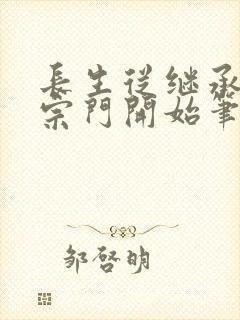 長生從继承
宗門開始筆
邹啓明